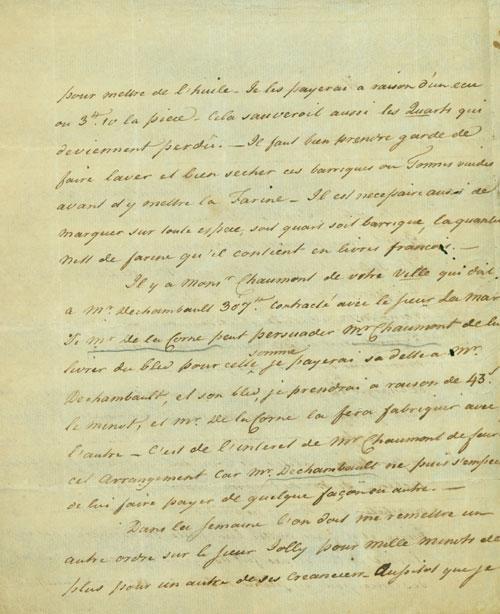 pour mettre de l'huile - Je les payerai a raison d'un ecu
ou 3lt. 10 la piece - Cela sauveroit aussi les Quarts qui
deviennent perdu. - Il faut bien prendre garde de
faire laver et bien secher ces barriques ou Tonnes vuides
avant d'y mettre la Farine - Il est necessaire aussi de
marquer sur toute espece, soit quart soit barrique, la quantit
Nett de farine qu'il contient en livres francois. -
Il y a Monsr Chaumont de votre Ville qui doit
a Mr. Dechambault 307lt. contracté avec le sieur La Mar
Si Mr De la Corne peut persuader Mr Chaumont de lui
livrer du bled pour cette somme je payerai sa dette a Mr.
Dechambault, et son bled, je prendrai a raison de 43s
le minot, et Mr. De la Corne la fera fabriquer avec
l'autre - C'est de l'interet de Mr Chaumont de faire
cet Arrangement Car Mr. Dechambault ne puis s'empec
de lui faire payer de quelque façon ou autre. -
Dans la semaine l'on doit me remettre un
autre ordre sur le sieur Jolly pour mille minots de
plus pour un autre de ses creanciers Aussitot que je